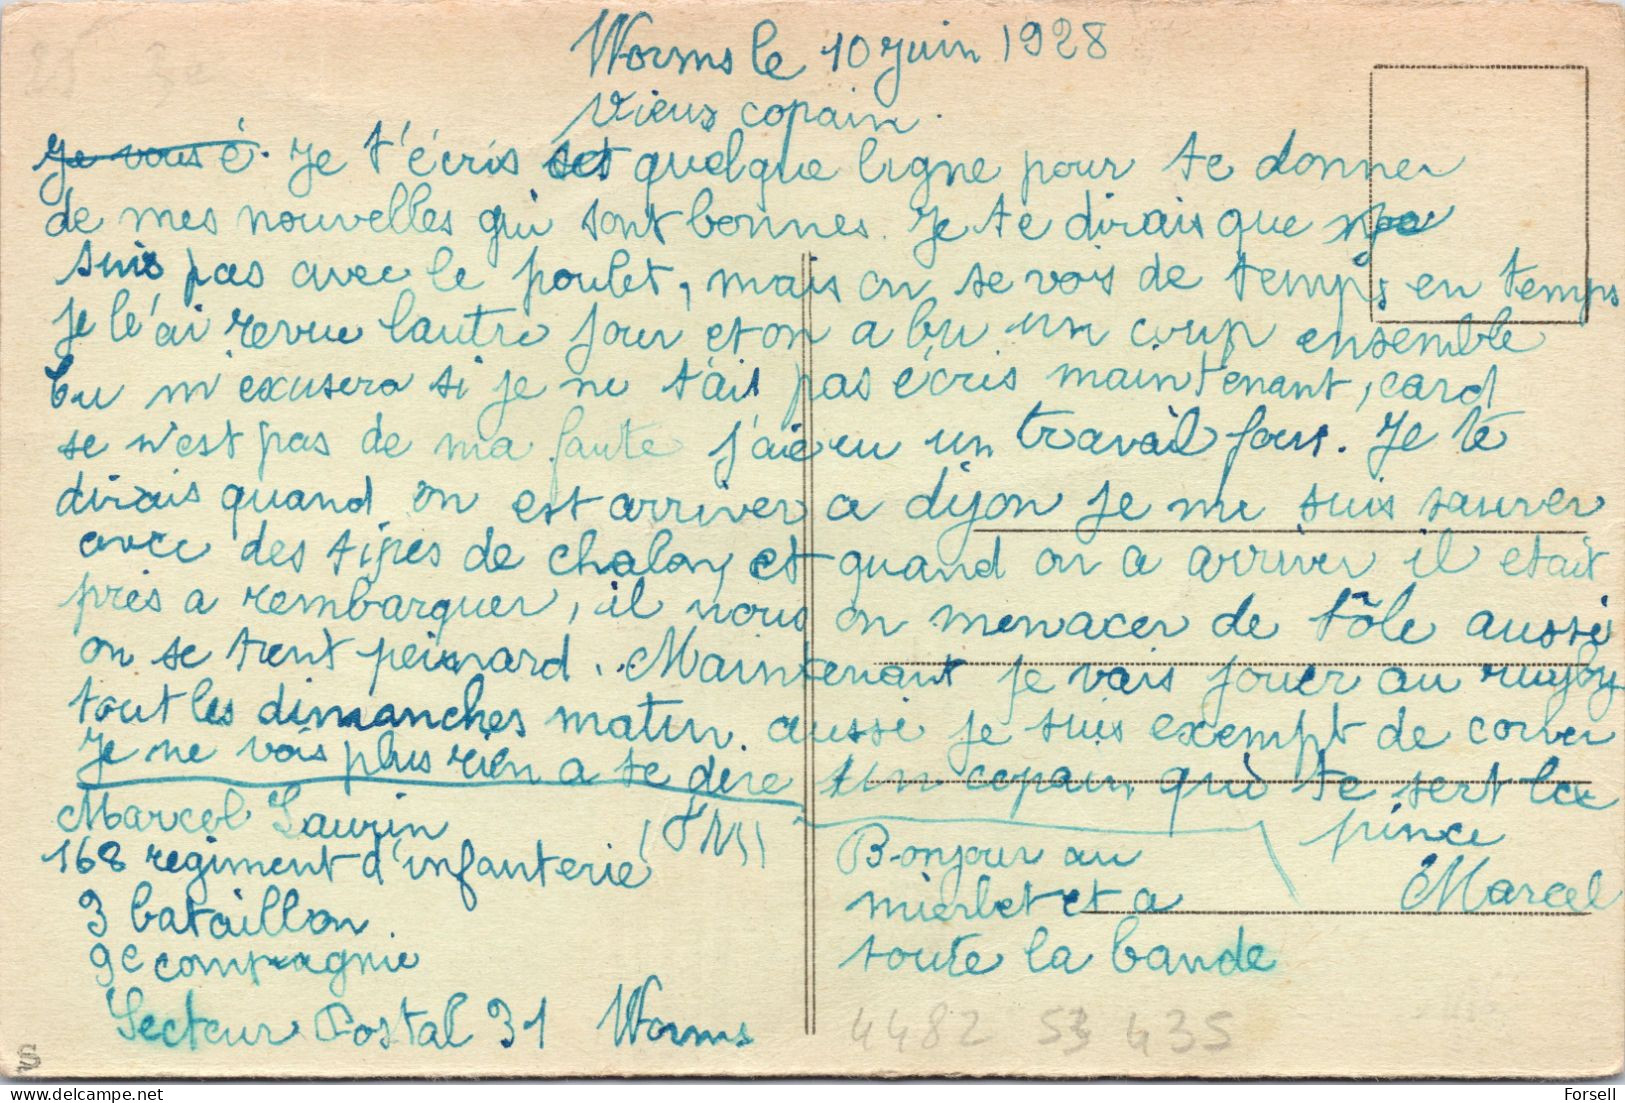 Worms le 10 juin 1928
Vieux copain.
Je vous é. Je t'écris ses quelque ligne pour te donner
de mes nouvelles qui sont bonnes. Je te dirais que
suis pas avec le poulet, mais on se vois de temps en temps
je le'ai revue lautre jour et on a bu un coup ensemble
tu m'excusera si je ne t'ais pas écris maintenant, card
se n'est pas de ma faute j'aie eu un travail fous. Je te
dirais quand on est arriver a dijon je me suis sauver
avec des tipes de chalon, et quand on a arriver il etait
près a rembarquer, il nous on menacer de tôle aussi
on se tient peinard. Maintenant je vais jouer au rugby
tout les dimanches matin aussi je suis exempt de corver
Je ne vois plus rien a te dire un copain qui te sert la
pince
Marcel
Marcel Laurin
168 regiment d'infanterie
3 bataillon
9e compagnie
Secteur Postal 31 Worms
Bonjour au
mierlet et a
toute la bande
4482 53 435
S
Forsell